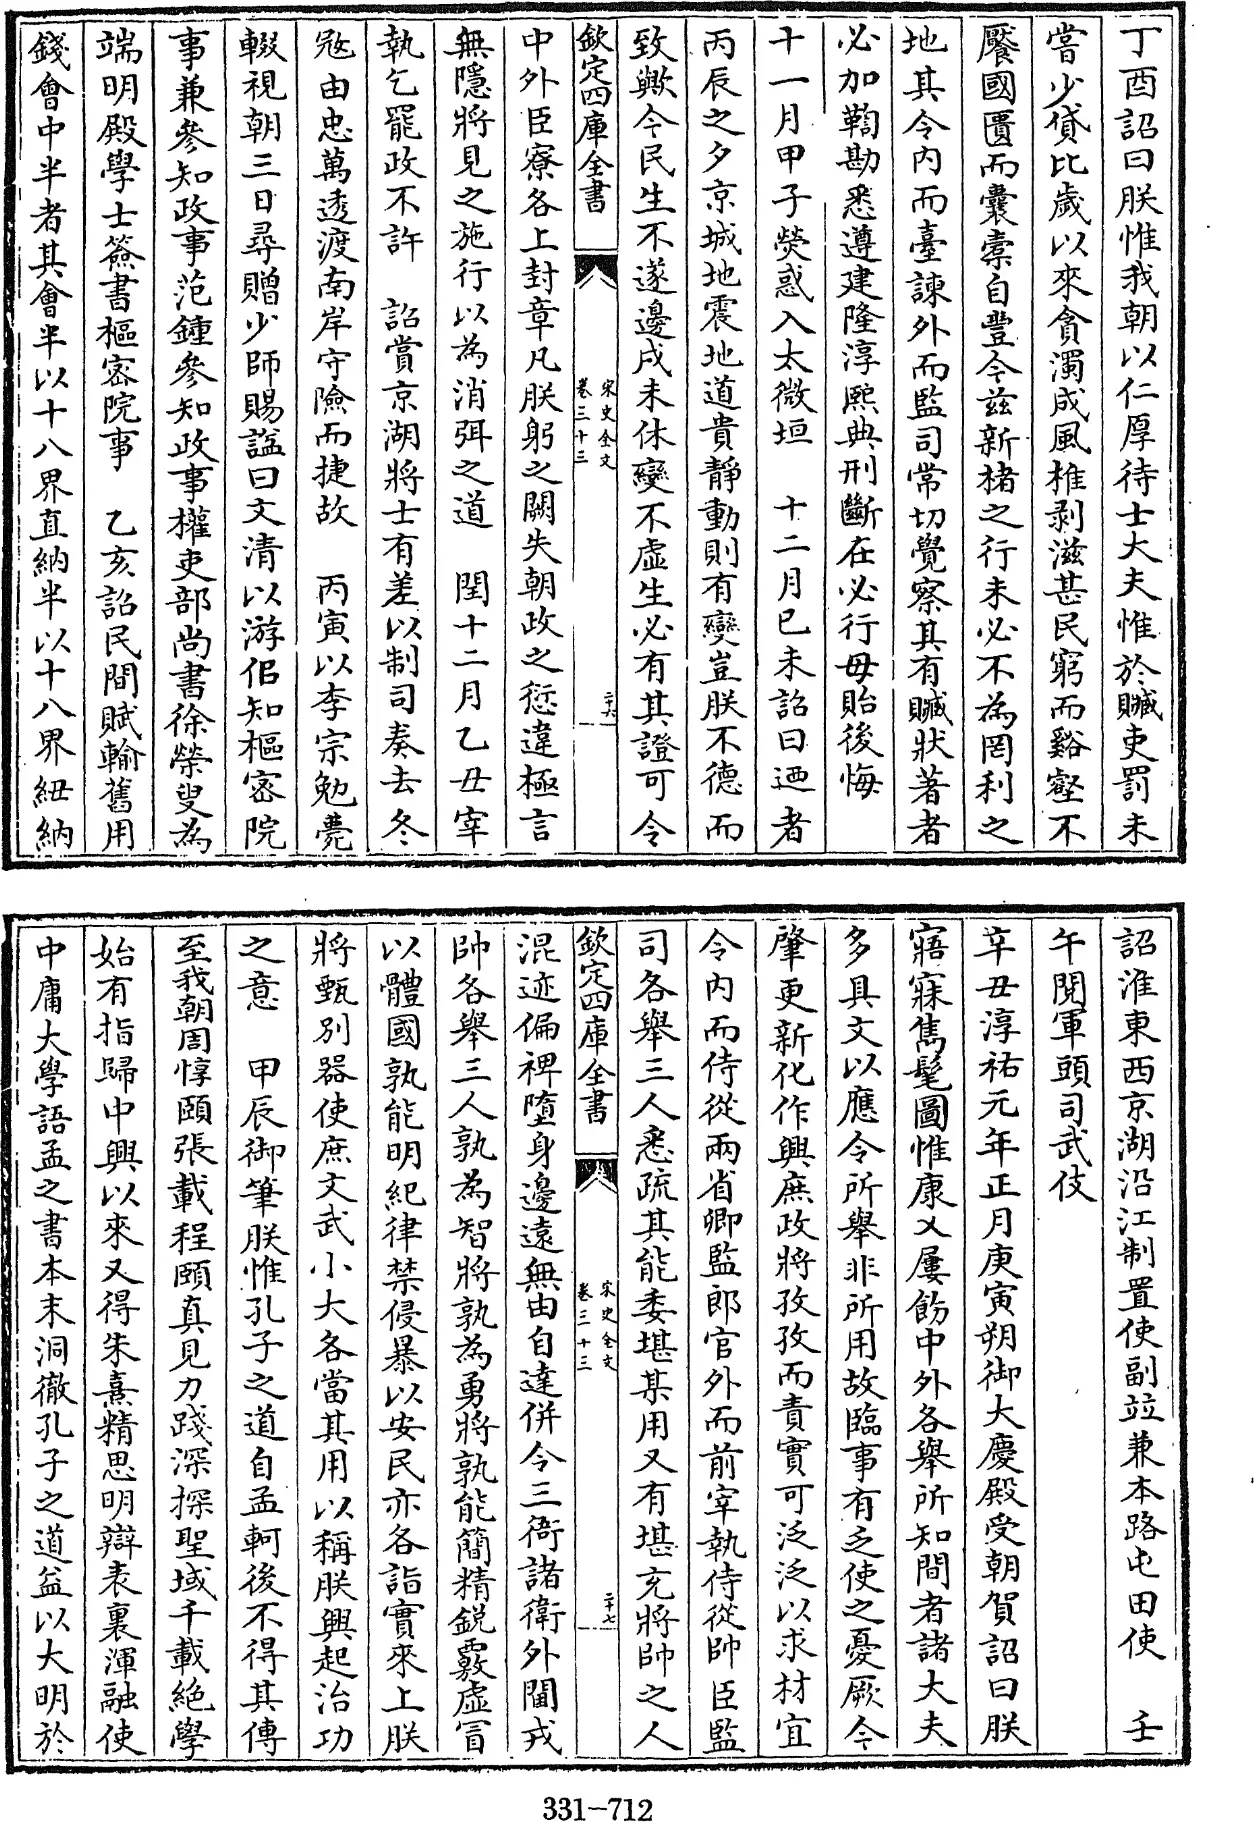 丁酉詔曰朕惟我朝以仁厚待士大夫惟於贓吏罰未
嘗少貸比歲以來貪濁成風椎剥滋甚民窮而谿壑不
饜國匱而囊橐自豐今兹新楮之行未必不為罔利之
地其令内而臺諫外而監司常切覺察其有贓狀著者
必加鞫勘悉遵建隆淳熙典刑斷在必行毋貽後悔
十一月甲子熒惑入太微垣　十二月已未詔曰迺者
丙辰之夕京城地震地道貴靜動則有變豈朕不德而
致歟今民生不遂邊戍未休變不虛生必有其證可令
欽定四庫全書
宋史全文
卷三十三
二十六
中外臣寮各上封章凡朕躬之闕失朝政之愆違極言
無隱將見之施行以為消弭之道　閏十二月乙丑宰
執乞罷政不許　詔賞京湖將士有差以制司奏去冬
㓂由忠萬透渡南岸守險而捷故　丙寅以李宗勉薨
輟視朝三日尋贈少師賜諡曰文清以游佀知樞密院
事兼參知政事范鍾參知政事權吏部尚書徐榮叟為
端明殿學士簽書樞密院事　乙亥詔民間賦輸舊用
錢會中半者其會半以十八界直納半以十八界紐納
詔淮東西京湖沿江制置使副竝兼本路屯田使　壬
午閱軍頭司武伎
辛丑淳祐元年正月庚寅朔御大慶殿受朝賀詔曰朕
寤寐雋髦圖惟康乂屢飭中外各舉所知間者諸大夫
多具文以應令所舉非所用故臨事有乏使之憂厥今
肇更新化作興庶政將孜孜而責實可泛泛以求材宜
令内而侍從兩省卿監郎官外而前宰執侍從帥臣監
司各舉三人悉疏其能委堪某用又有堪充將帥之人
欽定四庫全書
宋史全文
卷三十三
二十七
混迹偏裨墮身邊遠無由自達併令三衙諸衛外閫戎
帥各舉三人孰為智將孰為勇將孰能簡精鋭覈虛冒
以體國孰能明紀律禁侵暴以安民亦各詣實來上朕
將甄别器使庶文武小大各當其用以稱朕興起治功
之意　甲辰御筆朕惟孔子之道自孟軻後不得其傳
至我朝周惇頤張載程頤真見力踐深探聖域千載絶學
始有指歸中興以來又得朱熹精思明辯表裏渾融使
中庸大學語孟之書本末洞徹孔子之道益以大明於
331-712